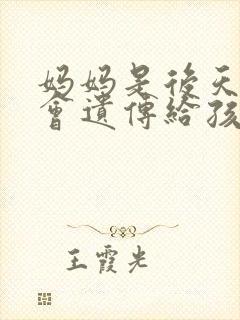 妈妈是后天
會遺傳給孩
王霞光